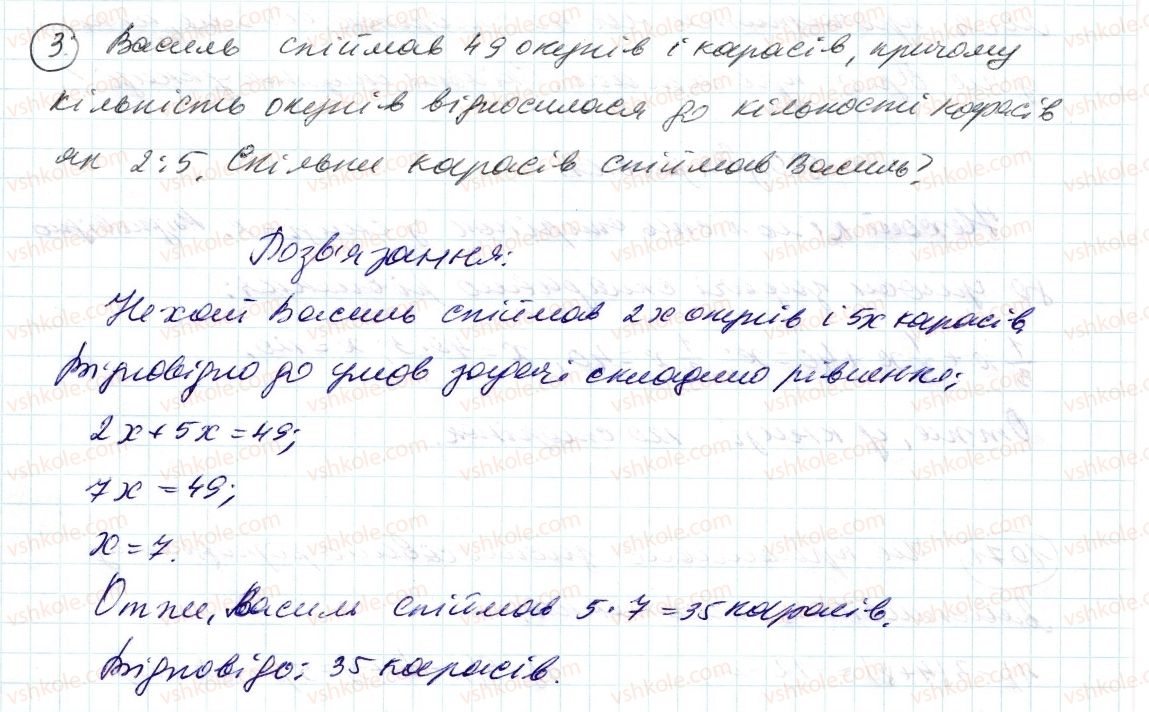 3. Василь спіймав 49 окунів і карасів, причому
кількість окунів відносилася до кількості карасів
як 2:5. Скільки карасів спіймав Василь?
Розв'язання:
Нехай Василь спіймав 2x окунів і 5x карасів.
Відповідно до умов задачі складемо рівняння:
2x+5x=49;
7x=49;
x=7.
Отже, Василь спіймав 5·7=35 карасів.
Відповідь: 35 карасів.
vshkole.com